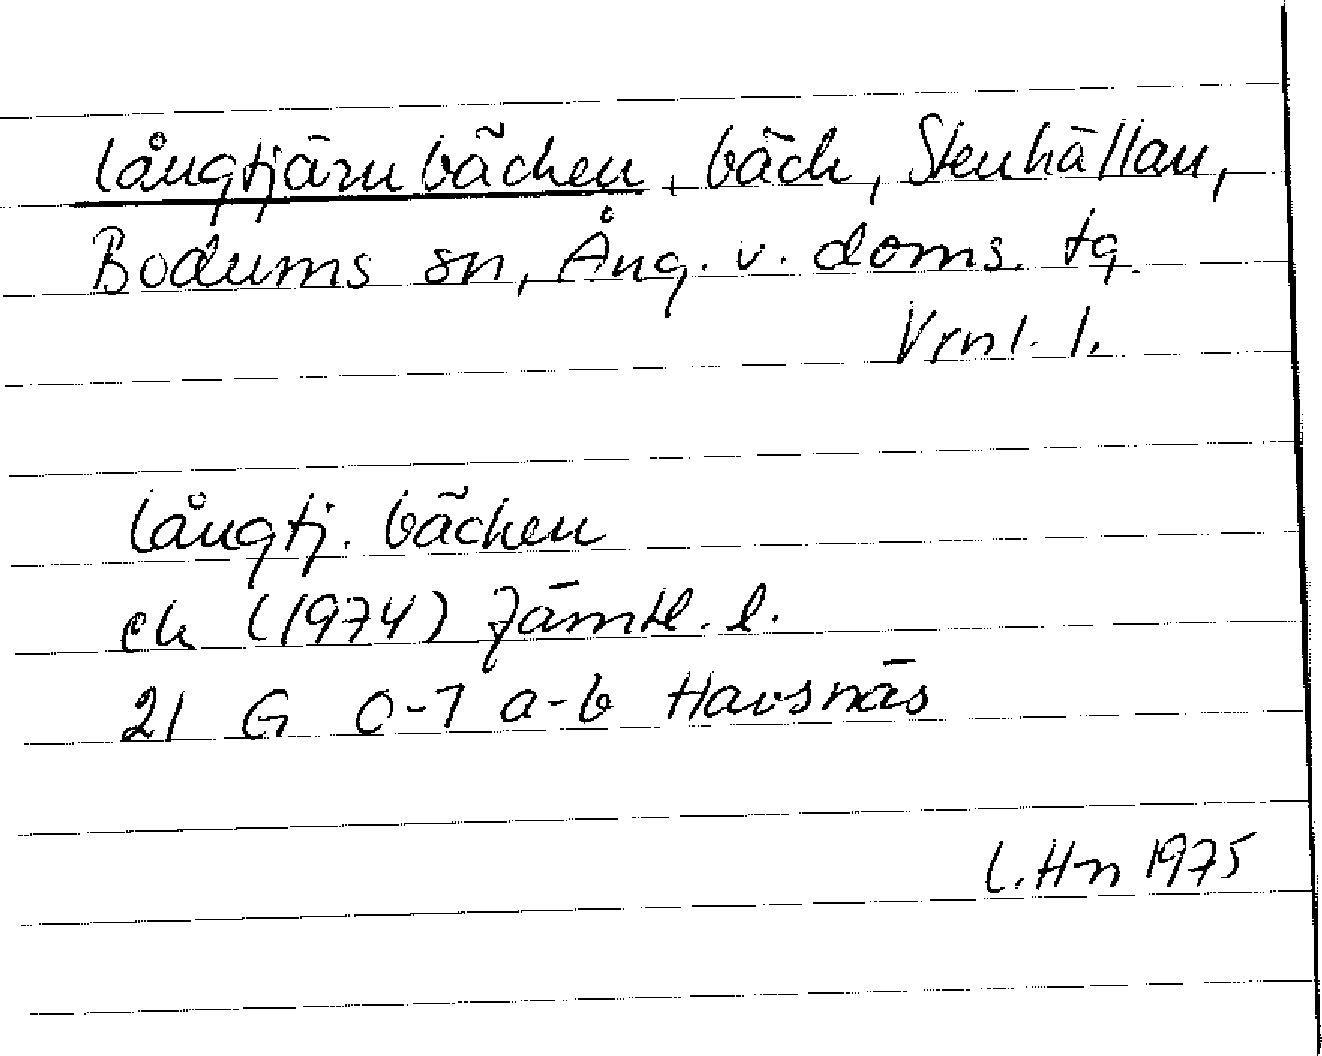 Långtjärnbäcken, bäck, Stenhällan,
Bodums sn, Ång. v. doms. tg.
Vrnl. l.
Långtj. bäcken
ek (1974) Jämtl. l.
21 G 0-1 a-b Havsnäs
L. Hn 1975